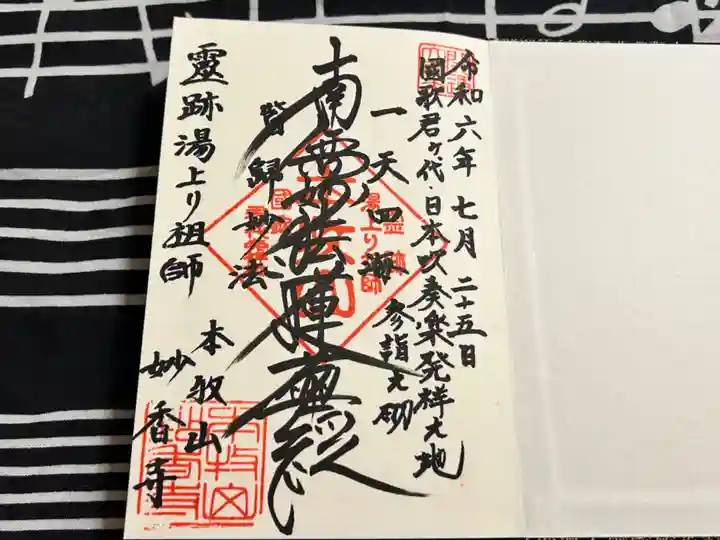 令和六年七月二十五日
國歌君ヶ代・日本吹奏楽発祥之地
参詣之砌
一天四海
南無妙法蓮華経
皆歸妙法
靈跡湯上り祖師
本牧山
妙香寺